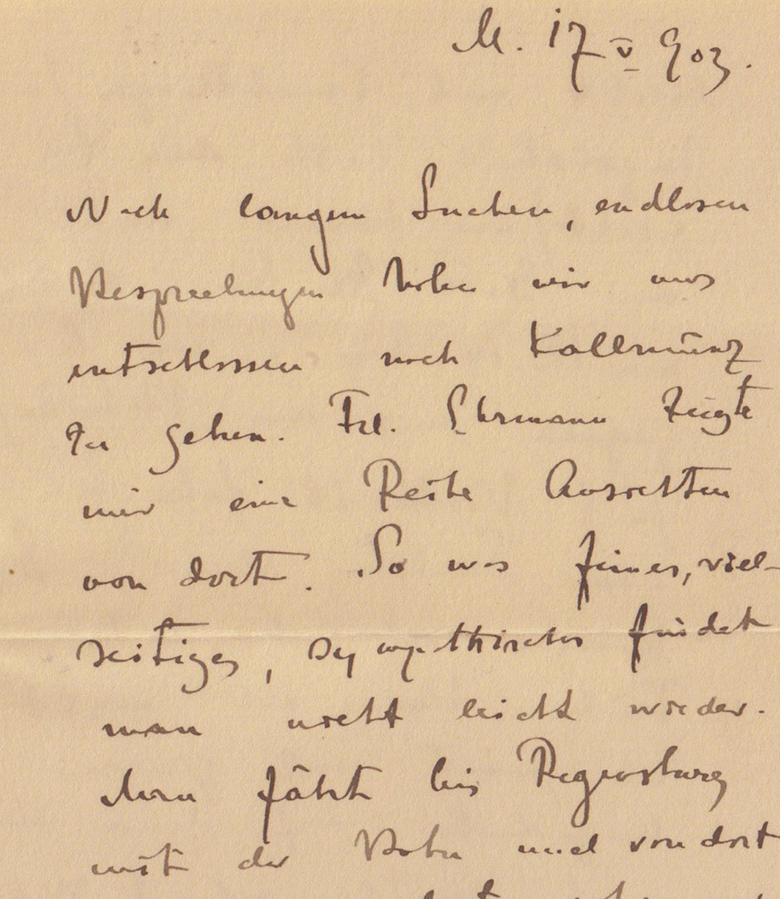 M. 17 V 903.
Nach langem Suchen, endlosen
Besprechungen haben wir uns
entschlossen nach Kallmünz
zu gehen. Frl. Ehrmann zeigte
mir eine Reihe Ansichten
von dort. So was feines, viel-
seitiges, sympathisches findet
man nicht leicht wieder.
Man fährt bis Regensburg
mit der Bahn und von dort